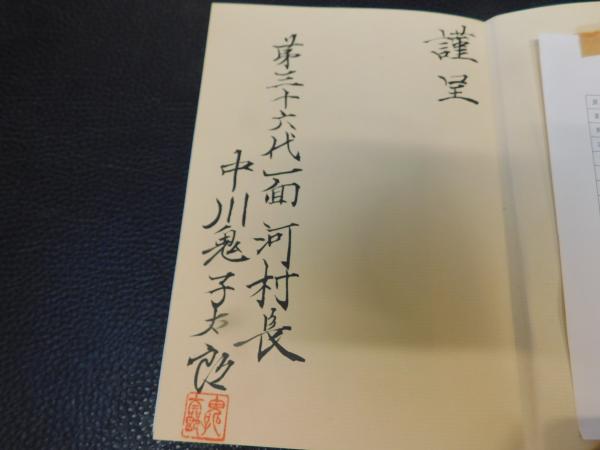 謹呈
第三十六代一面河村長
中川鬼子太郎